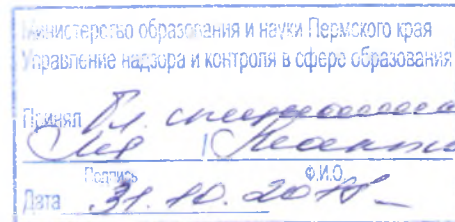 Министерство образования и науки Пермского края
Управление надзора и контроля в сфере образования
Принял Гл. специалист
Подпись Ф.И.О.
Дата 31.10.201